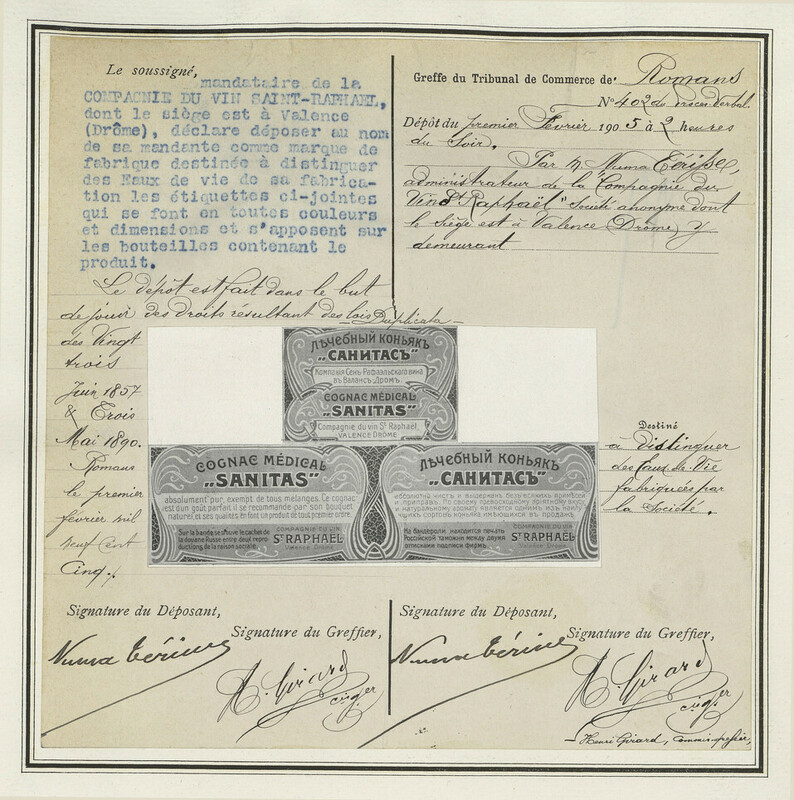 Le soussigné,
mandataire de la
COMPAGNIE DU VIN SAINT-RAPHAEL,
dont le siège est à Valence
(Drôme), déclare déposer au nom
de sa mandante comme marque de
fabrique destinée à distinguer
des Eaux de vie de sa fabrica-
tion les étiquettes ci-jointes
qui se font en toutes couleurs
et dimensions et s'apposent sur
les bouteilles contenant le
produit.
Le dépôt est fait dans le but
de jouir des droits résultant des lois
des Vingt
trois
Juin 1857
& Trois
Mai 1890.
Romans
le premier
février mil
neuf cent
Cinq.
Greffe du Tribunal de Commerce de Romans
N° 402 du procès verbal.
Dépôt du premier Février 1905 à 2 heures
du Soir.
Par M. Numa
administrateur de la Compagnie du
Vin St Raphaël" Société anonyme dont
le siège est à Valence Drôme y
demeurant
Duplicata
ЛѢЧЕБНЫЙ КОНЬЯКЪ
„САНИТАСЪ"
Компанія Сенъ Рафаэльскаго вина
въ Валансъ-Дромъ.
COGNAC MÉDICAL
„SANITAS"
Compagnie du vin St Raphaël,
VALENCE DRÔME
COGNAC MÉDICAL
„SANITAS"
absolument pur, exempt de tous mélanges. Ce cognac
est d'un goût parfait, il se recommande par son bouquet
naturel, et ses qualités en font un produit de tout premier ordre.
Sur la bande se trouve le cachet de
la douane Russe entre deux repro-
ductions de la raison sociale.
COMPAGNIE DU VIN
ST RAPHAËL
Valence Drôme
ЛѢЧЕБНЫЙ КОНЬЯКЪ
„САНИТАСЪ"
абсолютно чистъ и выдержанъ безъ всякихъ примѣсей
и приправъ. По своему превосходному пріятному вкусу
и натуральному аромату является однимъ изъ наилуч-
шихъ сортовъ коньяка имѣющихся въ продажѣ
На бандероли находится печать
Россійской таможни между двумя
оттисками подписи фирмъ.
COMPAGNIE DU VIN
ST RAPHAËL
Valence Drôme
Destiné
à distinguer
des Eaux de Vie
fabriquées par
la Société.
Signature du Déposant,
Signature du Greffier,
Numa
H. Girard
Signature du Déposant,
Signature du Greffier,
Numa
H. Girard
Henri Girard, Commis greffier,